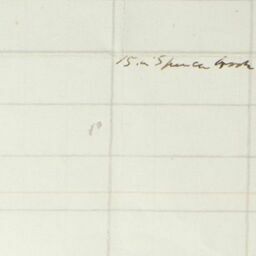 15 in Spencer Brook